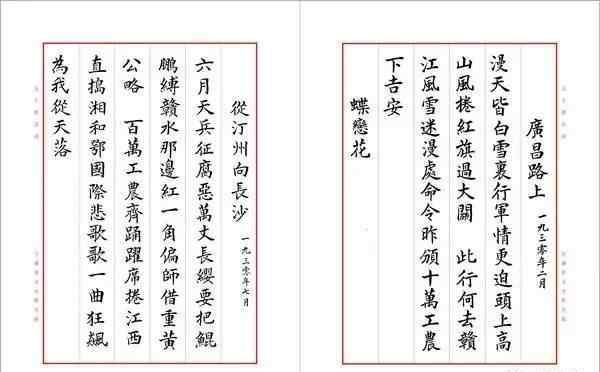 廣昌路上 一九三零年二月
漫天皆白雪裏行軍情更迫頭上高
山風捲紅旗過大關 此行何去贛
江風雪迷漫處命令昨頒十萬工農
下吉安
蝶戀花
從汀州向長沙 一九三零年七月
六月天兵征腐惡萬丈長纓要把鯤
鵬縛贛水那邊紅一角偏師借重黃
公略 百萬工農齊踴躍席捲江西
直搗湘和鄂國際悲歌歌一曲狂飆
為我從天落